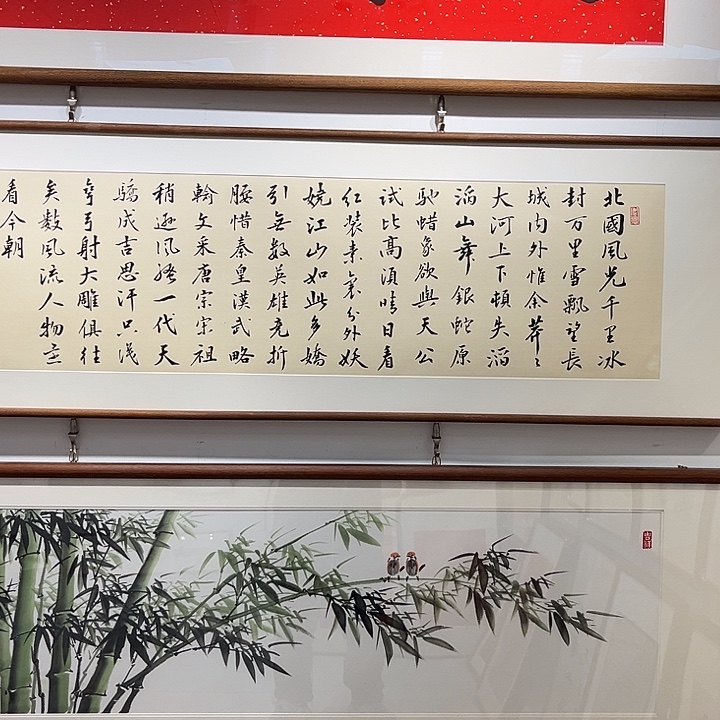 北國風光千里冰
封万里雪飘望長
城内外惟余莽々
大河上下頓失滔
滔山舞銀蛇原
馳蜡象欲與天公
試比高須晴日看
红裝素裹分外妖
娆江山如此多嬌
引無数英雄竞折
腰惜秦皇漢武略
输文采唐宗宋祖
稍逊風骚一代天
驕成吉思汗只识
彎弓射大雕俱往
矣数風流人物还
看今朝
吉祥